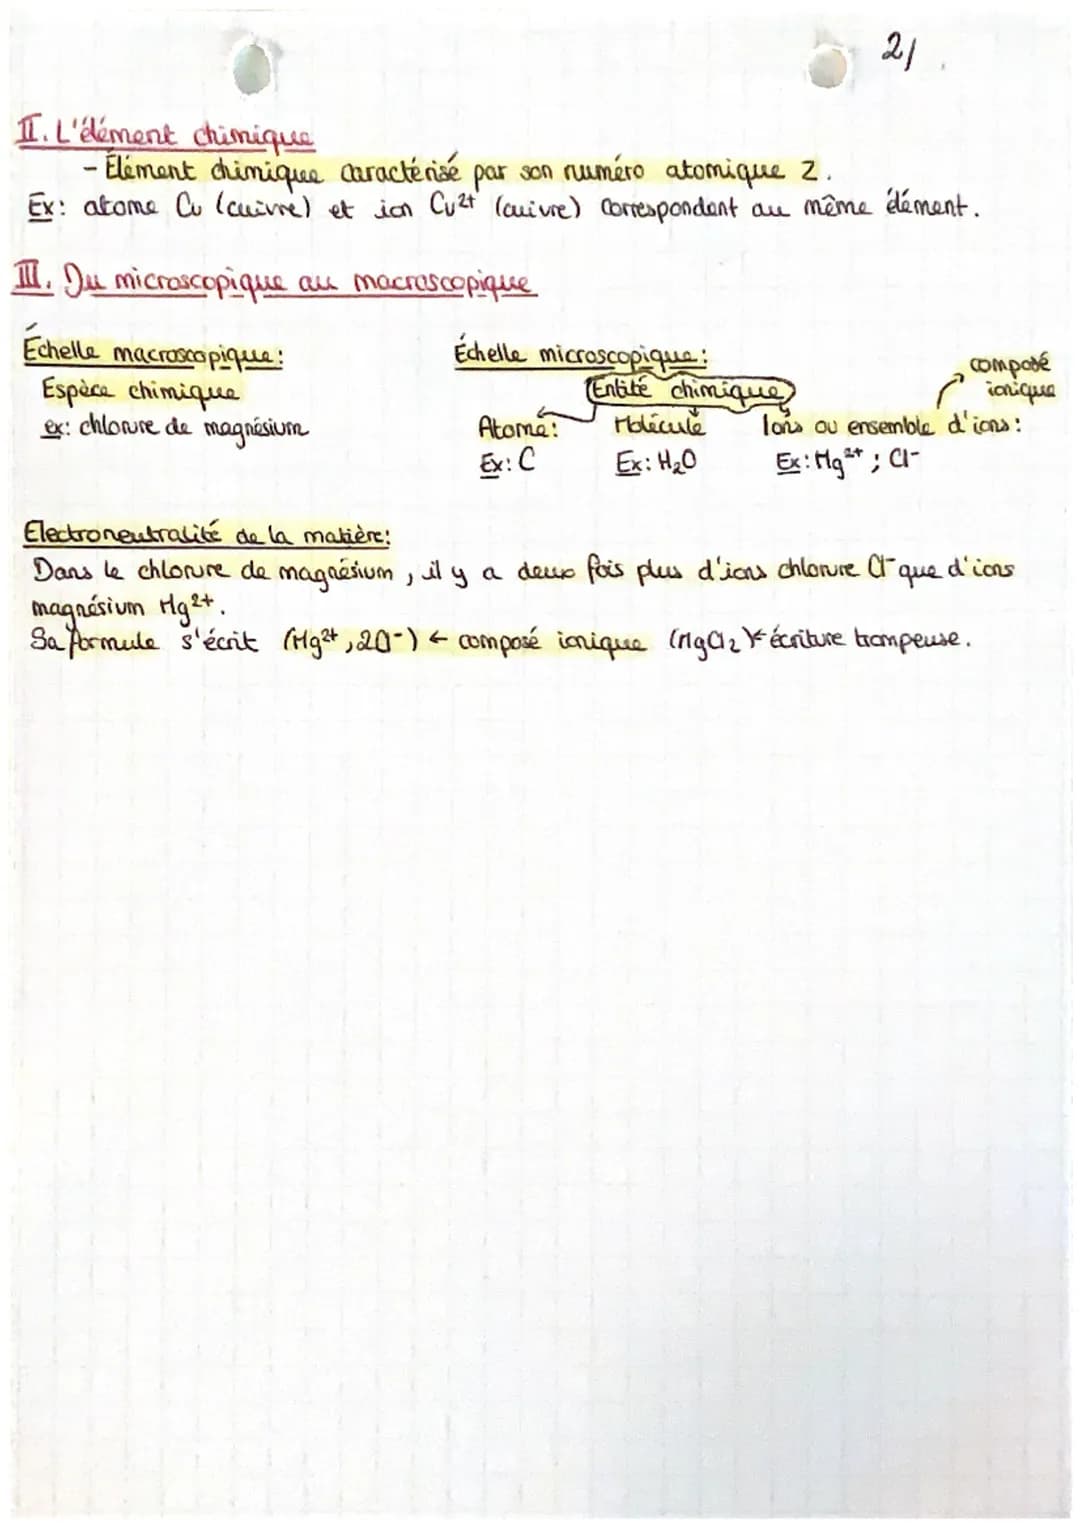 2/
II. L'élément chimique
- Élément chimique caractérisé par son numéro atomique Z.
Ex: atome Cu (cuivre) et ion Cu²⁺ (cuivre) correspondent au même élément.
III. Du microscopique au macroscopique
Échelle macroscopique:
Espèce chimique
ex: chlorure de magnésium
Échelle microscopique:
Entité chimique
Atome: Molécule Ions ou ensemble d'ions:
composé
ionique
Ex: C Ex: H₂O Ex: Mg²⁺ ; Cl⁻
Electroneutralité de la matière:
Dans le chlorure de magnésium, il y a deux fois plus d'ions chlorure Cl⁻ que d'ions
magnésium Mg²⁺.
Sa formule s'écrit (Mg²⁺, 2Cl⁻) ← composé ionique (MgCl₂) ← écriture trompeuse.